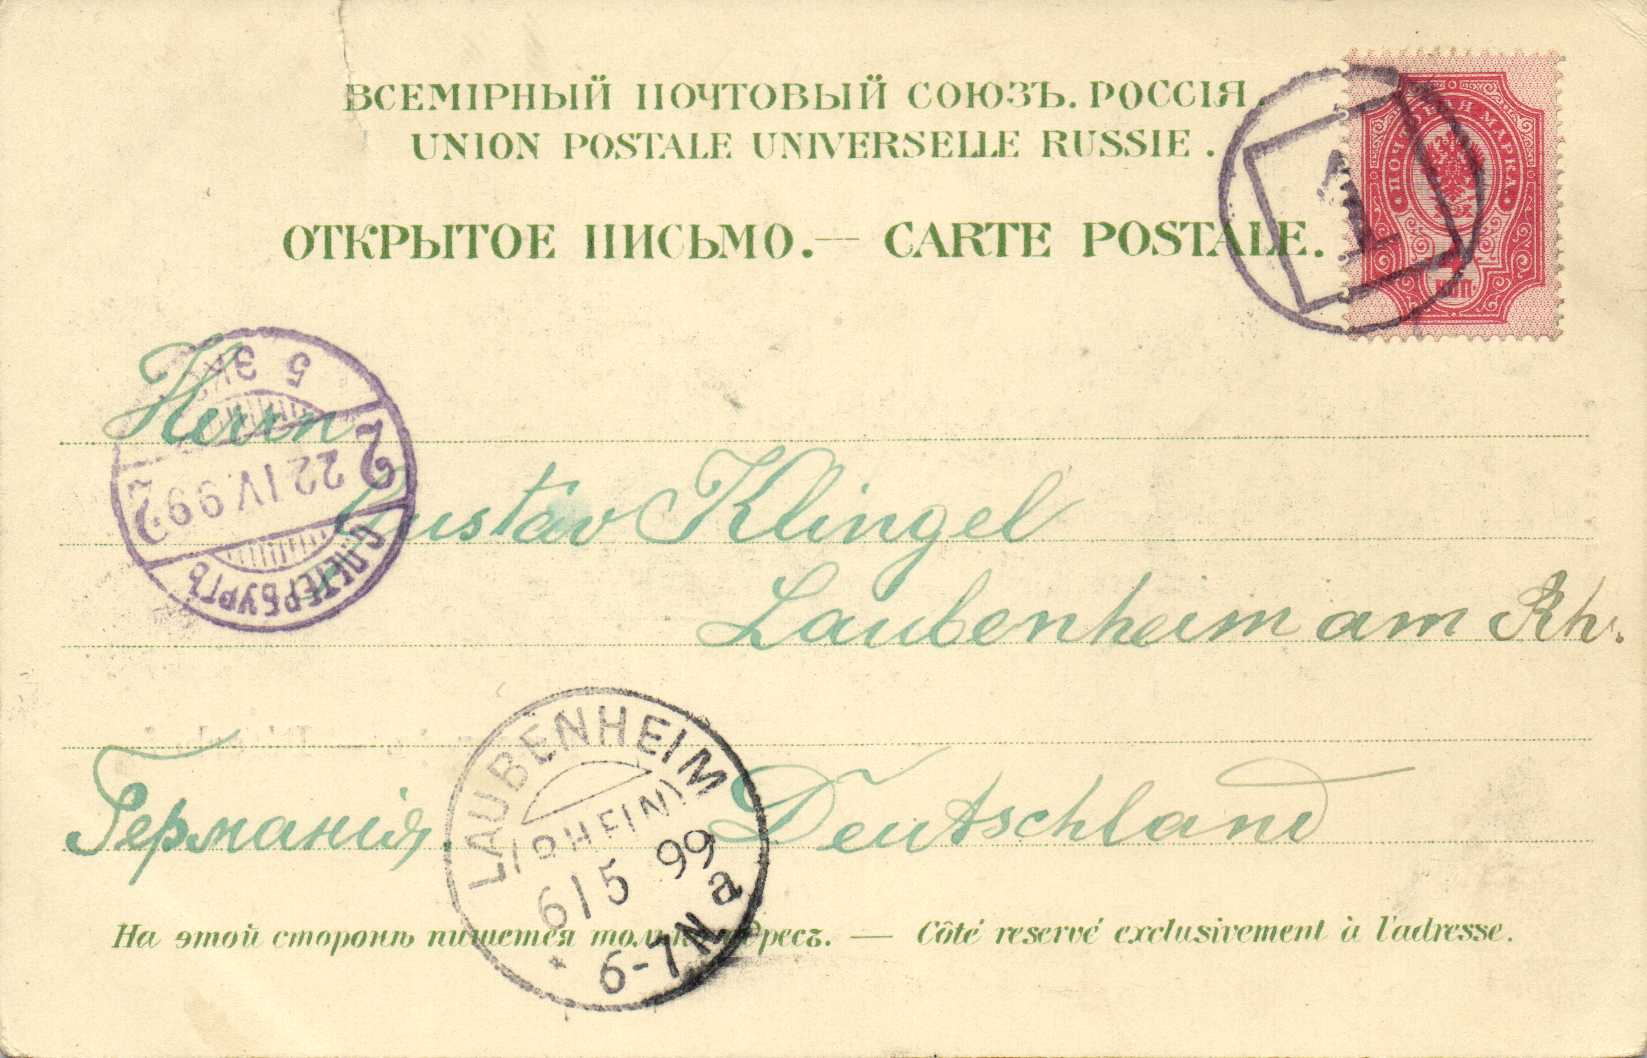 ВСЕМІРНЫЙ ПОЧТОВЫЙ СОЮЗЪ. РОССІЯ.
UNION POSTALE UNIVERSELLE RUSSIE.
ОТКРЫТОЕ ПИСЬМО. — CARTE POSTALE.
ПОЧТОВАЯ МАРКА
4 КОП.
1
5 ЭК
2 22 IV 99 2
С.ПЕТЕРБУРГЪ
Herrn
Gustav Klingel
Laubenheim am Rh.
Германія. Deutschland
LAUBENHEIM
(RHEIN)
6/5 99
a
* 6-7N
На этой сторонѣ пишется только адресъ. — Côté reservé exclusivement à l'adresse.